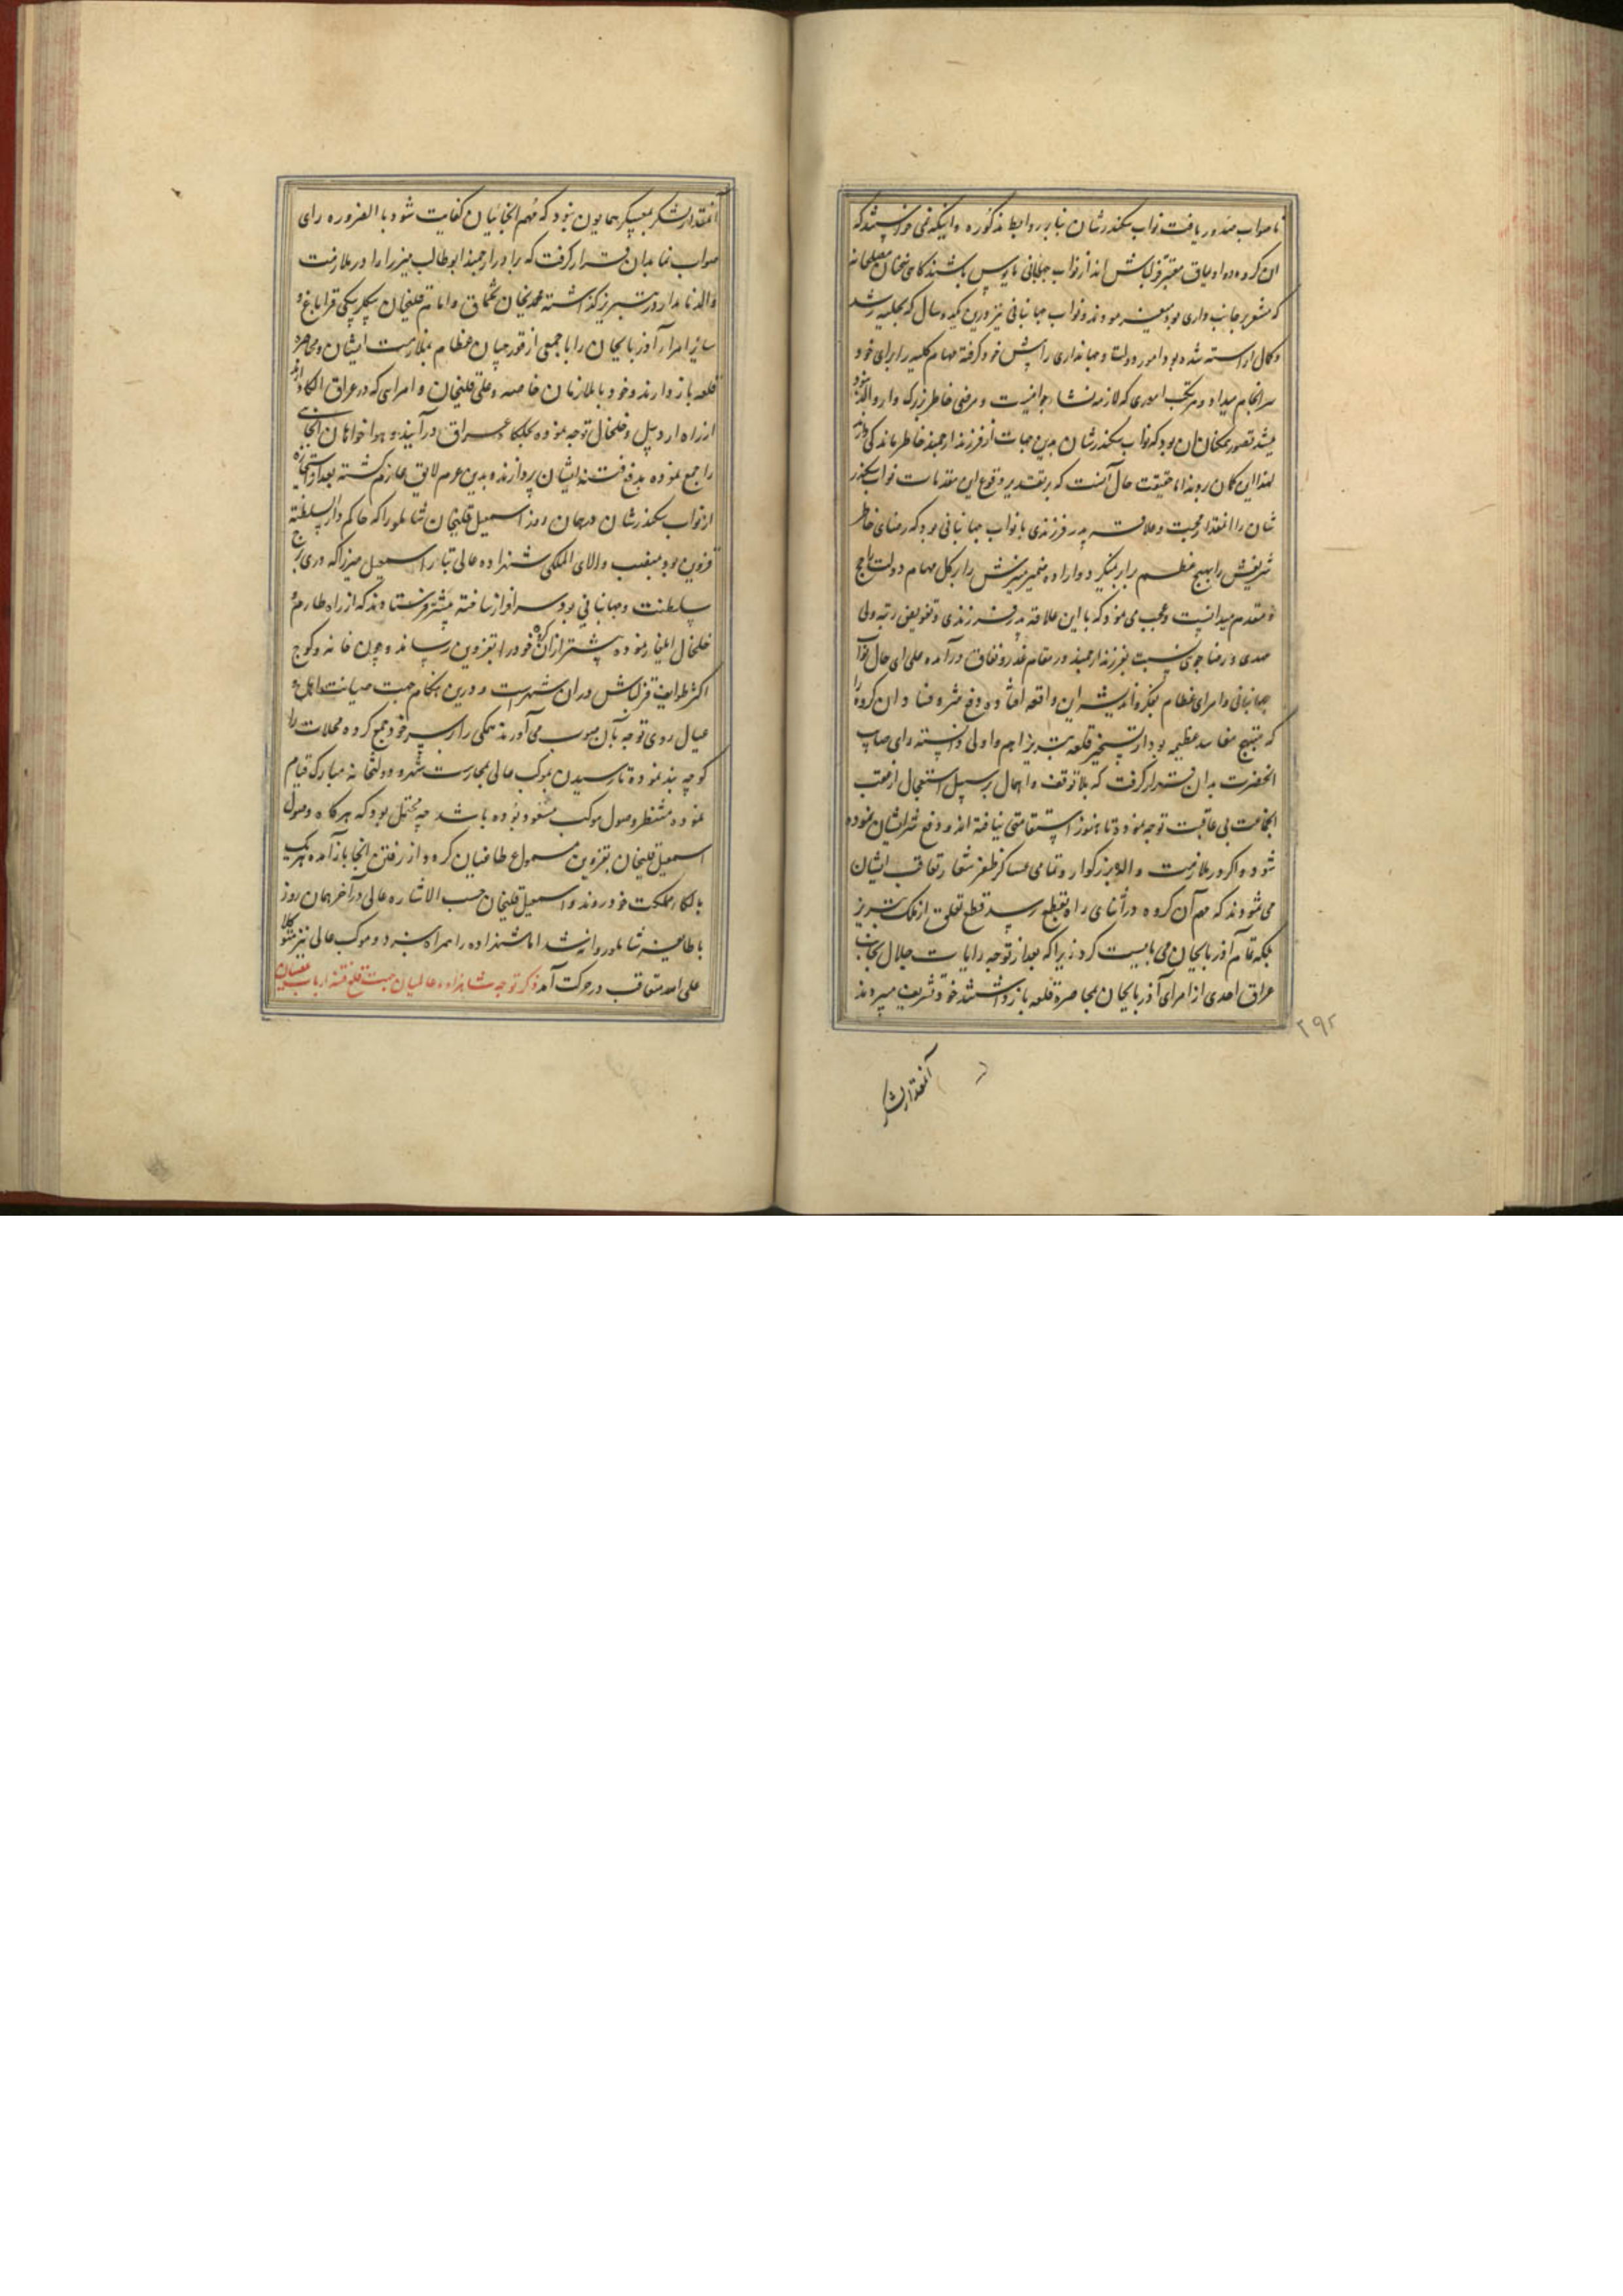 ناصواب میدور یافت نواب سکندرشان بنا بر روابط مذکوره و اینکه نمی خواستند که
ان گروه دو اویماق معتبر قزلباش اند از نواب جهانبانی مایوس باشند گاهی سخنان مصلحانه
که مشعر بر جانب داری بود میفرمودند و نواب جهانبانی نیز درین یکدو سال که بحلیه رشد
و کمال اراسته شده بود امور دولت و جهانداری را پیش خود گرفته مهام کلیه را برای خود
سرانجام میداد و مرتکب اموری که لازمه نشاء جوانیست و مرضی خاطر بزرگوار والد نبود
میشد تصور یمکنان ان بود که نواب سکندرشان بدین جهات از فرزند ارجمند خاطر ماندگی دارند
لهذا این گمان روند اما حقیقت حال آنست که بر تقدیر وقوع این مقدمات نواب سکندر
شان را انمقدار محبت و علاقه پدر فرزندی با نواب جهانبانی بود که رضای خاطر
شریفش را بهیچ مطلب برابر نمیکرد و اراده ضمیر منیرش را بر کل مهام دولت راجح
و مقدم میدانست و عجب می نمود که با این علاقه پدر فرزندی و تفویض رتبه ولی
عهدی و رضا جویی نسبت بفرزند ارجمند در مقام غدر و نفاق درآمده علی ای حال نواب
جهانبانی و امرای عظام بفکر و اندیشه این واقعه افتاده دفع شر و فساد ان گروه را
که منتج مفاسد عظیمه بود از تسخیر قلعه تبریز اهم و اولی دانسته رای صایب
انحضرت بدان قرار گرفت که بلا توقف و اهمال بر سبیل استعجال از عقب
انجماعت بی عاقبت توجه نموده تا هنوز استقامتی نیافته اند در دفع شر ایشان نموده
شود و اگر در ملازمت والد بزرگوار و تمامی عساکر ظفر شعار تعاقب ایشان
می شودند که مهم آن گروه در اثنای راه بقطع رسد قطع تعلق از ملک تبریز
بلکه تمام آذربایجان می بایست کرد زیرا که بعد از توجه رایات جلال بجانب
عراق احدی از امرای آذربایجان بمحاصره قلعه باز داشتند خود تشریف میبردند
۲۹۲
آنمقدار لشکر
آنمقدار لشکر بمعسکر همایون نبود که مهم انجانیان کفایت شود بالضروره رای
صواب نما بدان قرار گرفت که برادر ارجمند ابوطالب میرزا را در ملازمت
والد نامدار در تبریز گذاشته محمدیخان تخماق و امام قلیخان بیگلربیگی قراباغ و
سایر امرآء آذربایجان را با جمعی از قورچیان عظام بملازمت ایشان و محاصره
قلعه باز دارند و خود با ملازمان خاصه و علی قلیخان و امرایی که در عراق الکا دارند
از راه اردبیل و خلخال توجه نموده بملک عراق درآیند و هواخواهان انجایی
را جمع نموده بدفع فتنه ایشان پردازند و بدین عزم لایق عازم گشته بعد از استجازه
از نواب سکندرشان در همان روز اسمعیل قلیخان شاملو را که حاکم دارالسلطنه
قزوین بود بمنصب والای للگی شهزاده عالی تبار اسمعیل میرزا که دری برج
سلطنت و جهانبانی بود سرافراز ساخته پیشتر فرستادند که از راه طارم و
خلخال ایلغار نموده پیشتر از ان گروه خود را بقزوین رساند و چون خانه و کوچ
اکثر طوایف قزلباش در ان شهرست و درین هنگام جهت صیانت اهل و
عیال روی توجه بآن صوب می آورند همگی را بر سر خود جمع کرده محلات را
کوچه بند نموده تا رسیدن موکب عالی بحارست شهر و دولتخانه مبارک قیام
نموده منتظر وصول موکب مسعود بوده باشد چه محتمل بود که هرگاه وصول
اسمعیل قلیخان بقزوین مسموع طاغیان گردد از رفتن انجا باز آمده هر یک
بالکا و مملکت خود روند و اسمعیل قلیخان حسب الاشاره عالی در آخر همان روز
با طایفه شاملو روانه شد اما شهزاده را همراه نبرد و موکب عالی نیز متوکلا
علی الله متعاقب در حرکت آمد ذکر توجه شاهزاده عالمیان جهت قلع فتنه ارباب عصیان